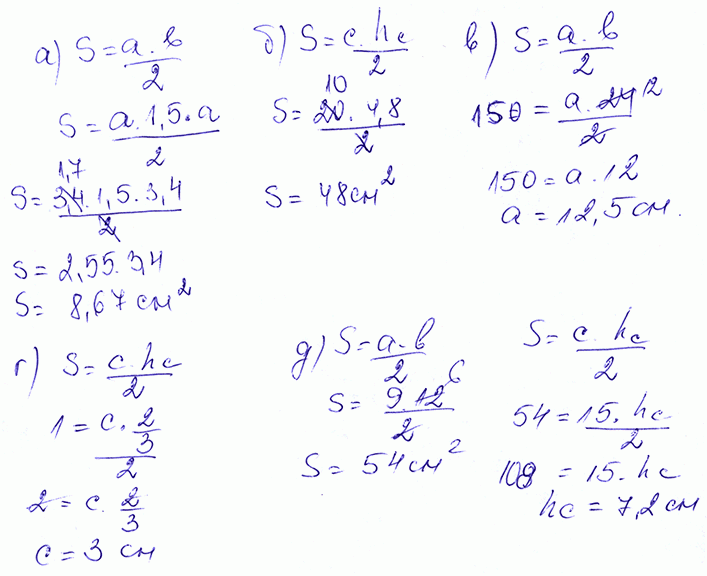 а) S = a·b/2
S = a·1,5·a/2
1,7
S = 3,4·1,5·3,4/2
S = 2,55·3,4
S = 8,67 см²
б) S = c·hc/2
10
S = 20·4,8/2
S = 48 см²
в) S = a·b/2
150 = a·24/2 12
150 = a·12
a = 12,5 см.
г) S = c·hc/2
1 = c·2/3/2
2 = c·2/3
c = 3 см
д) S = a·b/2
6
S = 9·12/2
S = 54 см²
S = c·hc/2
54 = 15·hc/2
108 = 15·hc
hc = 7,2 см